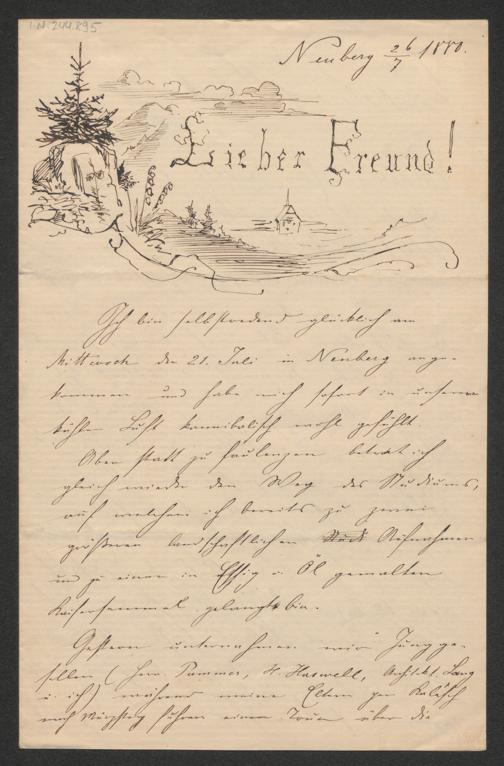 I.N. 244.895
Neuberg 26/7 1880.
Lieber Freund!
Ich bin selbstredend glücklich am
Mittwoch den 21. Juli in Neuberg ange-
kommen und habe mich sofort in unserer
kühlen Luft kannibalisch wohl gefühlt
Aber statt zu faulenzen betrat ich
gleich wieder den Weg des Studiums,
auf welchem ich bereits zu zwei
größeren landschaftlichen Aufnahmen
und zu einer in Essig u Öl gemalten
Kaisersemmel gelangt bin.
Gestern unternahmen wir Jungge-
sellen (Herr Pammer, H Haswell, Architekt Lang
u ich) während meine Eltern per Kalesch
nach Mürzsteg fuhren eine Tour über die